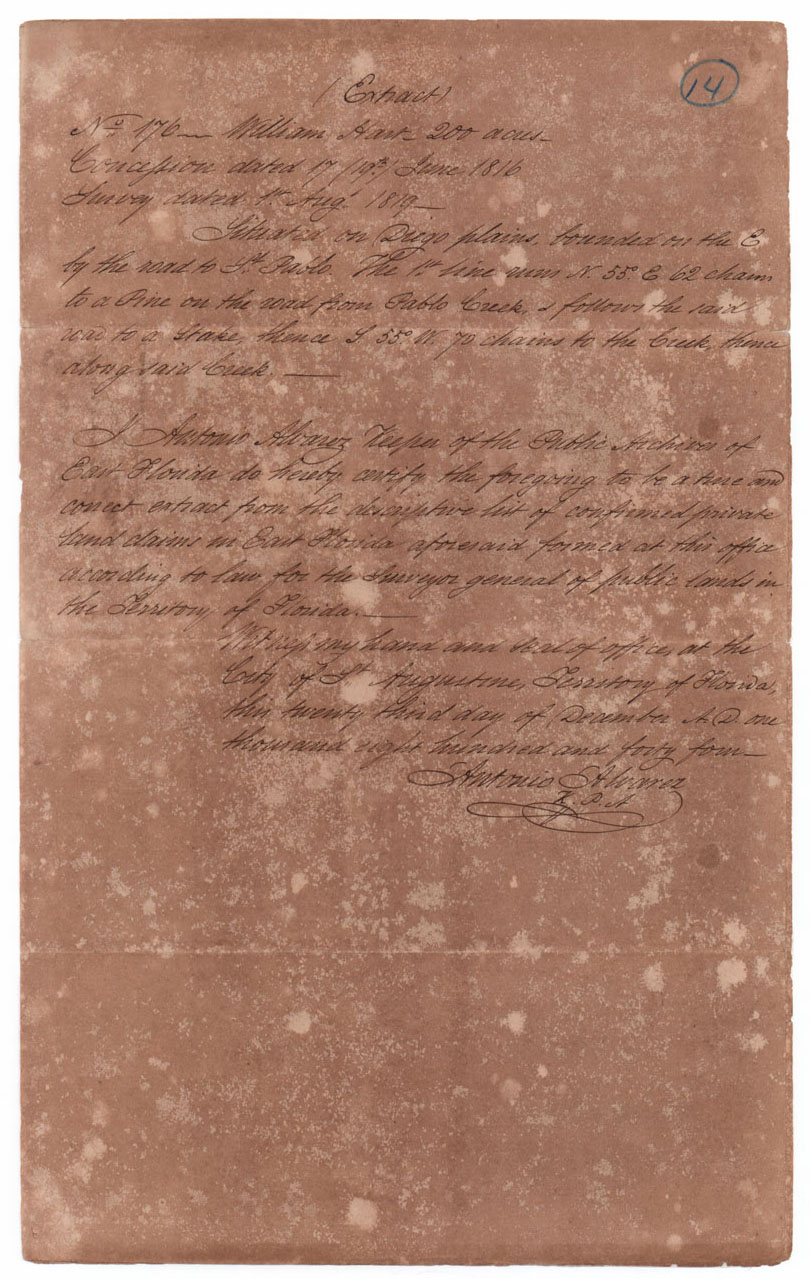 14
(Extract)
No 176 — William Hart 200 acres
Concession dated 17 (19th) June 1816
Survey dated 1st Augt 1819 —
Situated on Diego plains, bounded on the E
by the road to St. Pablo. The 1st line runs N. 55° E 62 chains
to a Pine on the road from Pablo Creek, & follows the said
road to a Stake, thence S 55° W. 70 chains to the Creek, thence
along said Creek. —
I Antonio Alvarez Keeper of the Public Archives of
East Florida do hereby certify the foregoing to be a true and
correct extract from the descriptive list of confirmed private
land claims in East Florida aforesaid formed at this office
according to law, for the Surveyor general of public lands in
the Territory of Florida. —
Witness my hand and seal of office, at the
City of St Augustine, Territory of Florida,
this twenty third day of December A. D. one
thousand eight hundred and forty four —
Antonio Alvarez
K. P. A